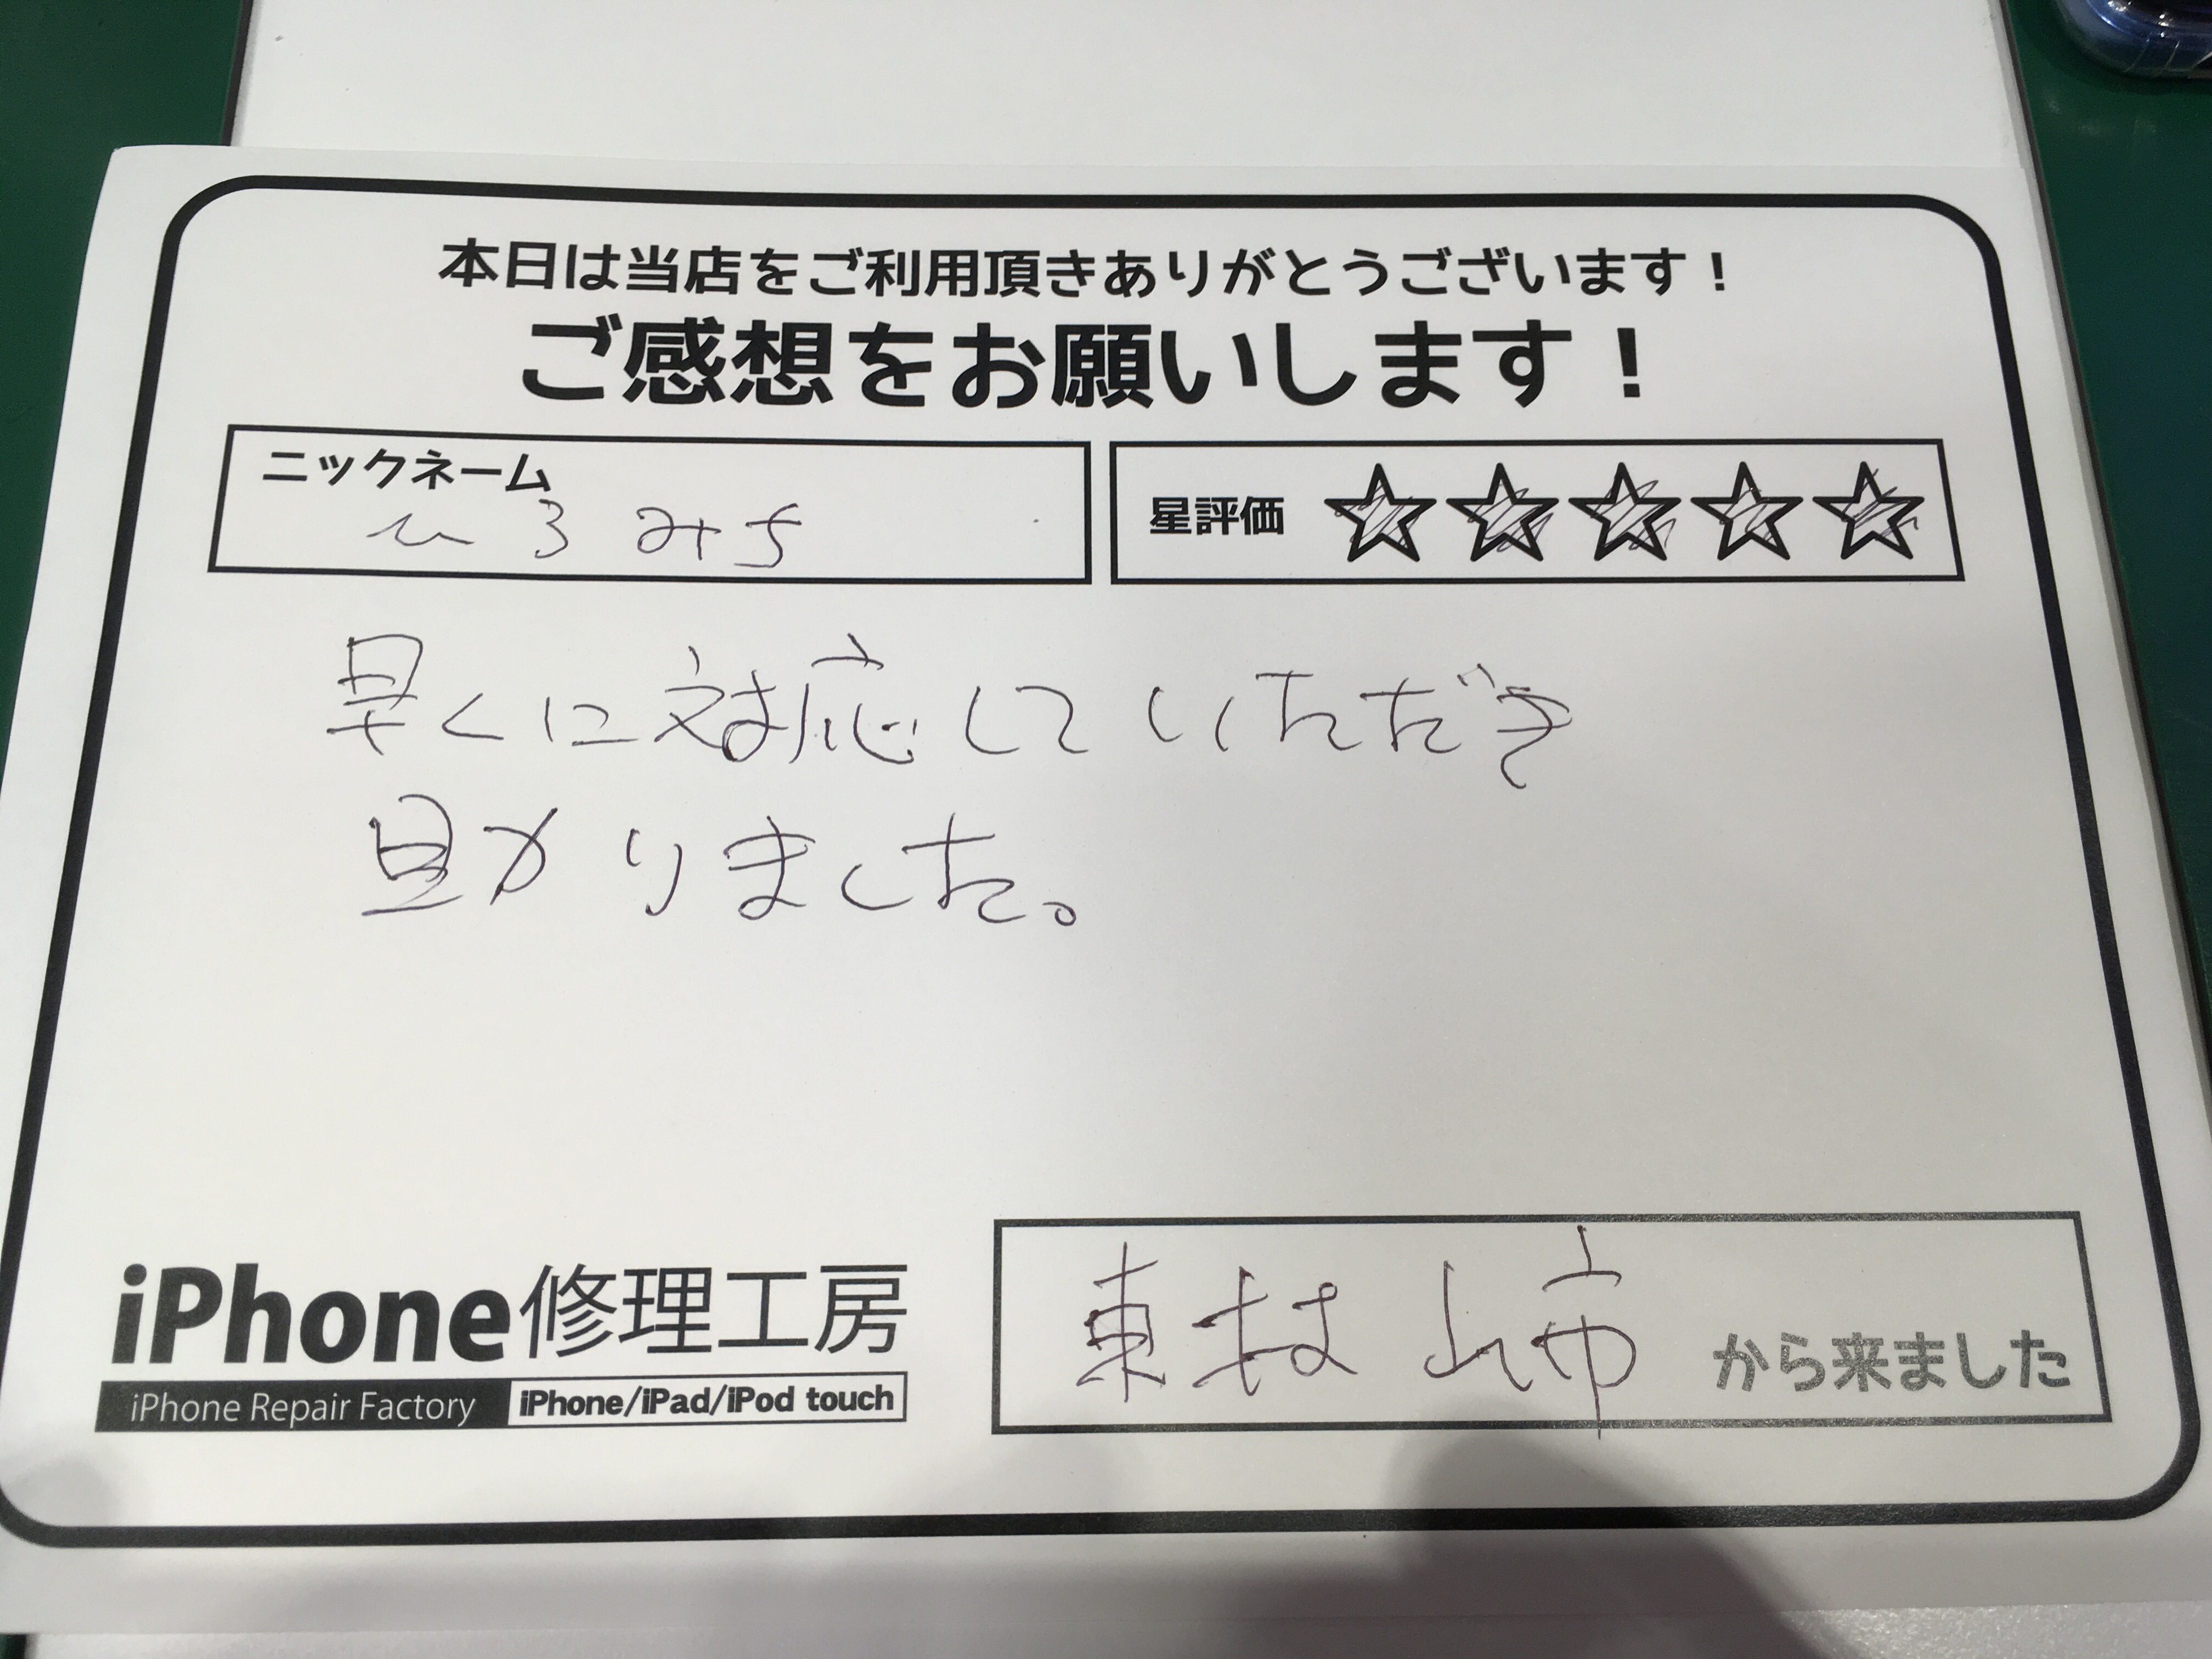 本日は当店をご利用頂きありがとうございます！
ご感想をお願いします！
ニックネーム
ひろみち
星評価 ☆☆☆☆☆
早くに対応していただき
助かりました。
iPhone修理工房
iPhone Repair Factory iPhone/iPad/iPod touch
東村山市 から来ました